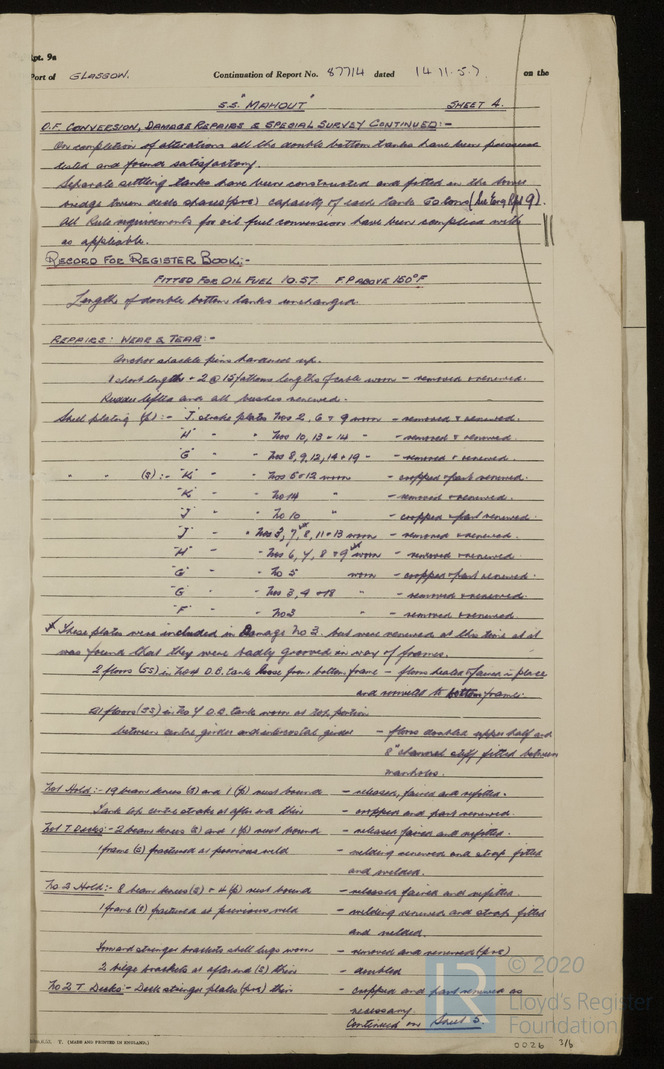 Rpt. 9a
Port of GLASGOW. Continuation of Report No. 87714 dated 14.11.57 on the
S.S. "MAHOUT" SHEET 4.
O.F. CONVERSION, DAMAGE REPAIRS & SPECIAL SURVEY CONTINUED:-
On completion of alterations all the double bottom tanks have been pressure
tested and found satisfactory.
Separate settling tanks have been constructed and fitted in the lower
bridge tween deck spaces (p&s) capacity of each tank 60 tons (See Eng Rpt 9).
All Rule requirements for oil fuel conversion have been complied with
as applicable.
RECORD FOR REGISTER BOOK:-
FITTED FOR OIL FUEL 10.57 F.P. ABOVE 150°F
Length of double bottom tanks unchanged.
REPAIRS: WEAR & TEAR:-
Anchor shackle pins hardened up.
1 short length + 2 @ 15 fathoms lengths of cable worn - removed & renewed.
Rudder lifted and all bushes renewed.
Shell plating (p):- "J" strake plates Nos 2, 6 & 9 worn - removed & renewed.
"H" " " Nos 10, 13 & 14 " - removed & renewed.
"G" " " Nos 8, 9, 12, 14 & 19 " - removed & renewed.
" " (s):- "K" " " Nos 5 & 12 worn - cropped & part renewed.
"K" " " No 14 " - removed & renewed.
"J" " " No 10 " - cropped & part renewed.
"J" " " Nos 3, 7, 8, 11 & 13 worn - removed & renewed.
"H" " Nos 6, 7, 8 & 9 worn - removed & renewed.
"G" " " No 5 worn - cropped & part renewed.
"G" " " Nos 3, 4 & 18 " - removed & renewed.
"F" " " No 3 " - removed & renewed.
These plates were included in Damage No 3. but were renewed at this time as it
was found that they were badly grooved in way of frames.
2 floors (SS) in No 4 D.B. tank loose from bottom frame - floors heated & faired in place
and riveted to bottom frames.
All floors (SS) in No 4 D.B. tank worn at top portion
between centre girder and intercostal girder - floors doubled upper half and
8" channel stiff fitted between
manholes.
No 1 Hold:- 19 beam knees (s) and 1 (p) rust bound - released, faired and refitted.
Tank top centre strake at after end thin - cropped and part renewed.
No 1 T. Decks:- 2 beam knees (s) and 1 (p) rust bound - released faired and refitted.
1 frame (s) fractured at previous weld - welding renewed and strap fitted
and welded.
No 2 Hold:- 8 beam knees (s) & 4 (p) rust bound - released faired and refitted.
1 frame (s) fractured at previous weld - welding renewed and strap fitted
and welded.
Forward stringer brackets shell lugs worn - removed and renewed (p&s)
2 bilge brackets at after end (s) thin - doubled
No 2 T Decks:- Deck stringer plates (p&s) thin - cropped and part renewed as
necessary.
Continued on Sheet 5.
T. (MADE AND PRINTED IN ENGLAND.)
0026 3/6
© 2020
Lloyd's Register
Foundation
LR